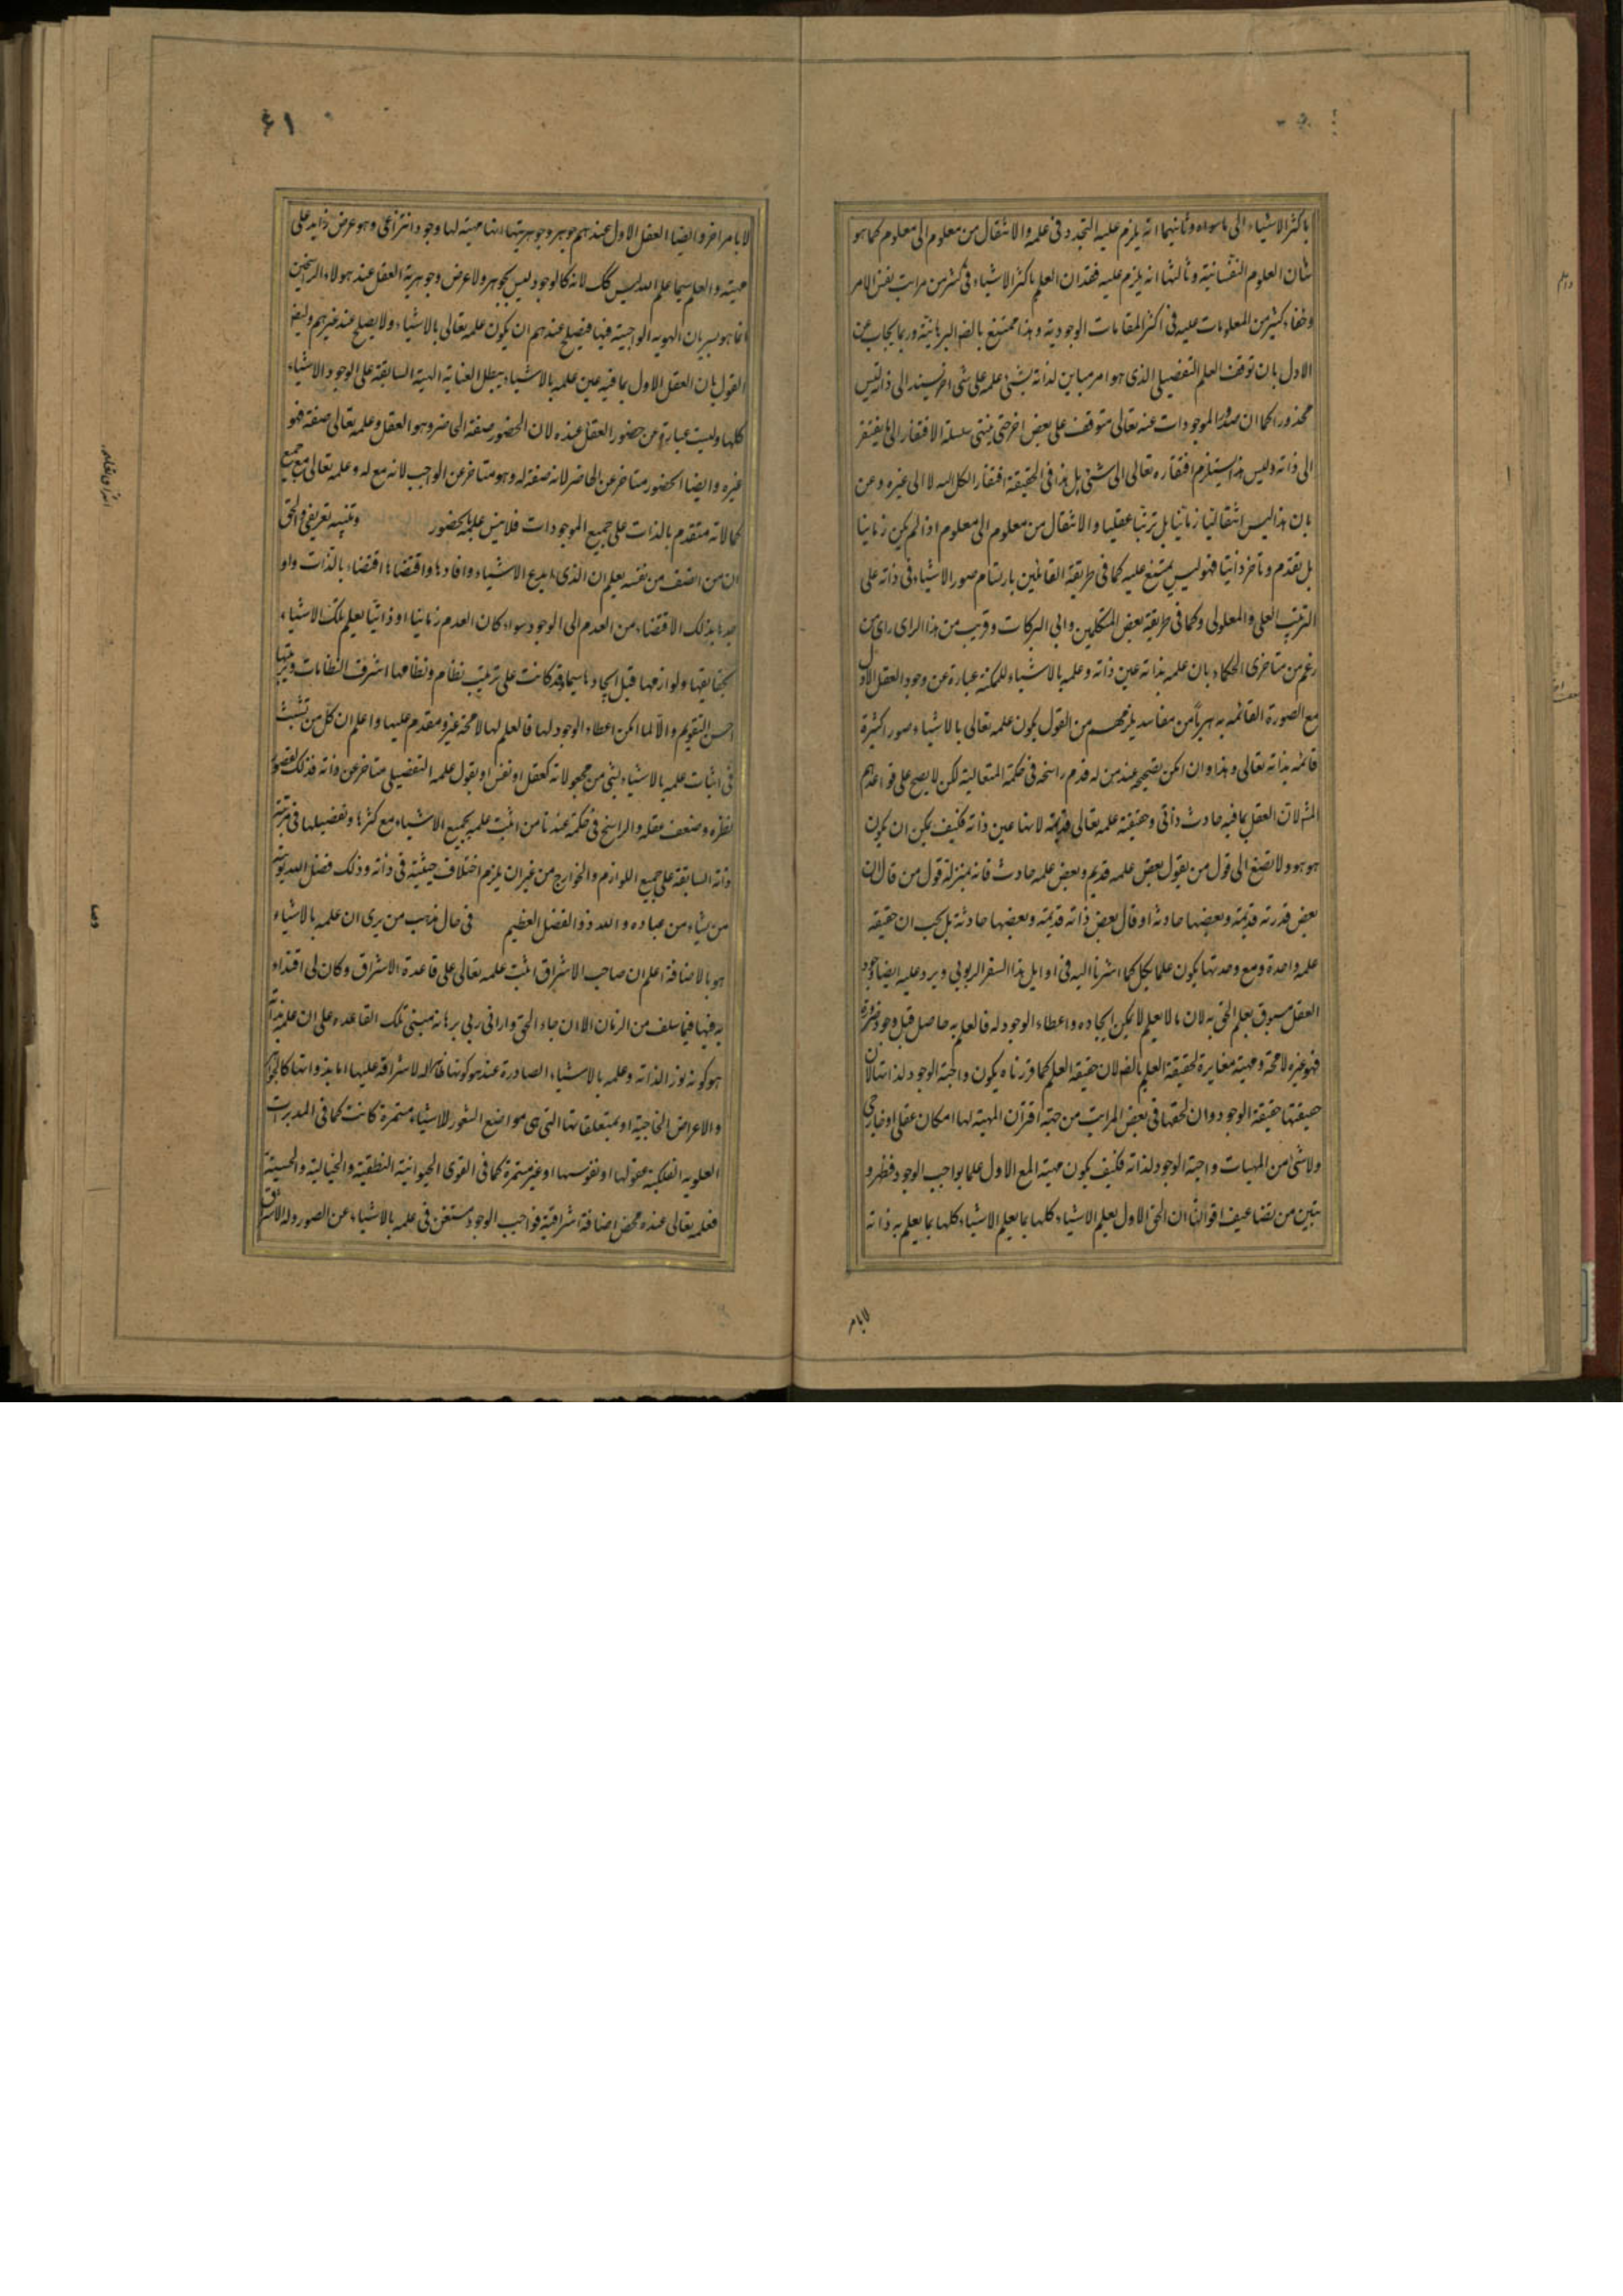 باكثر الاشياء الى ماسواه وثانيهما انه يلزم عليه التجدد فى علمه والانتقال من معلوم الى معلوم كما هو
شان العلوم النفسانية وثالثها انه يلزم عليه فقدان العلم باكثر الاشياء فى كثير من مراتب نفس الامر
وخفاء كثير من المعلومات عليه فى اكثر المقامات الوجودية وهذا ممتنع بالضو البرهانية وربما يجاب عن
الاول بان توقف العلم التفصيلى الذى هو امر مباين لذاته بشئ علمه على شئ اخر يستند الى ذاته ليس
محذورا كما ان صدور الموجودات عنه تعالى متوقف على بعض اخر حتى ينتهى سلسلة الافتقار الى ما يفتقر
الى ذاته وليس هذا يستلزم افتقاره تعالى الى شئ بل هذا فى الحقيقة افتقار الكل اليه لا الى غيره وعن
بان هذا ليس انتقاليا زمانيا بل ترتبا عقليا والانتقال من معلوم الى معلوم اذا لم يكن زمانيا
بل بتقدم وتاخر ذاتيا فهو ليس بممتنع عليه كما فى طريقة القائلين بارتسام صور الاشياء فى ذاته على
الترتيب العلى والمعلولى وكما فى طريقة بعض المتكلمين وابى البركات وقريب من هذا الراى راى من
زعم من متاخرى الحكماء بان علمه بذاته عين ذاته وعلمه بالاشياء الممكنه عبارة عن وجود العقل الاول
مع الصورة القائمه به هربا من مفاسد يلزمهم من القول بكون علمه تعالى بالاشياء صورا كثيرة
قائمه بذاته تعالى وهذا وان امكن تصحيحه عند من له قدم راسخه فى حكمة المتعالية لكن لا يصح على قواعدهم
المش لان العقل بما فيه حادث ذاتى وحقيقة علمه تعالى قديمة لانها عين ذاته فكيف يمكن ان يكون
هو هو ولا تصغ الى قول من يقول بعض علمه قديم وبعض علمه حادث فانه بمنزلة قول من قال ان
بعض قدرته قديمة وبعضها حادثة او قال بعض ذاته قديمة وبعضها حادثة بل يجب ان حقيقة
علمه واحدة ومع وحدتها يكون علما بكل كما اشرنا اليه فى اوايل هذا السفر الربوبى ويرد عليه ايضا وجود
العقل مسبوق بعلم الحق به لان ما لا يعلم لا يمكن ايجاده واعطاء الوجود له فالعلم به حاصل قبل وجوده ضرورة
فهو غيره لا محة وهيته مغايرة لحقيقة العلم بالض لان حقيقة العلم كما قررناه يكون واجبة الوجود لذاتها لان
حقيقتها حقيقة الوجود وان لحقها فى بعض المراتب من جهة اقتران المهية لها امكان عقلى او خارجى
ولا شئ من المهيات واجبة الوجود لذاته فكيف يكون مهية المع الاول علما بواجب الوجود فظهر و
تبين من تضاعيف اقوالنا ان الحق الاول يعلم الاشياء كلها بما يعلم الاشياء كلها بما يعلم به ذاته
لا بامر
٤١
لا بامر اخر وايضا العقل الاول عندهم جوهر وجوهريتها انها مهية لها وجود انتزاعى وهو عرض زايد على
مهيته والعلم سيما علم الله ليس كك لانه كالوجود ليس بجوهر ولا عرض وجوهرية العقل عند هولاء الراسخين
انما هو بسريان الهوية الواجبية فيها فيصلح عندهم ان يكون علمه تعالى بالاشياء ولا يصلح عند غيرهم وايضا
القول بان العقل الاول بما فيه عين علمه بالاشياء يبطل العناية الالهية السابقة على الوجود الاشياء
كلها وليست عبارة عن حضور العقل عنده لان الحضور صفة الحاضر وهو العقل وعلمه تعالى صفة فهو
غيره وايضا الحضور متاخر عن الحاضر لانه صفة له وهو متاخر عن الواجب لانه مع له وعلمه تعالى مع جميع
كمالاته متقدم بالذات على جميع الموجودات فلا يفسر علمه بالحضور وتنبيه تعريفى والحق
ان من انصف من نفسه يعلم ان الذى ابدع الاشياء وافادها واقتضاها اقتضاء بالذات واو
جدها بذلك الاقتضاء من العدم الى الوجود سواء كان العدم زمانيا او ذاتيا يعلم تلك الاشياء
بحقايقها ولوازمها قبل ايجادها سيما وقد كانت على ترتيب نظام ونظامها اشرف النظامات وترتيبها
احسن التقويم والا لما امكن اعطاء الوجود لها فالعلم لها لا محة غيره ومقدم عليها واعلم ان كل من تشبث
فى اثبات علمه بالاشياء بشئ من مجعولاته كعقل او نفس او يقول علمه التفصيلى متاخر عن ذاته فذلك لقصور
نظره وضعف عقله والراسخ فى حكمة عندنا من اثبت علمه بجميع الاشياء مع كثرتها وتفضيلها فى مرتبة
ذاته السابقة على جميع اللوازم والخوارج من غير ان يلزم اختلاف حيثية فى ذاته وذلك فضل الله يوتيه
من يشاء من عباده والله ذو الفضل العظيم فى حال مذهب من يرى ان علمه بالاشياء
هو بالاضافة اعلم ان صاحب الاشراق اثبت علمه تعالى على قاعدة الاشراق وكان لى اقتداء
به فيها فيما سلف من الزمان الا ان جاء الحق وارانى ربى برهانه مبنى تلك القاعده على ان علمه بذاته
هو كونه نورا لذاته وعلمه بالاشياء الصادرة عنه هو كونها ظاهرة له لاشراقه عليها اما بذواتها كالجواهر
والاعراض الخارجية او بمتعلقاتها التى هى مواضع الشعور للاشياء مستمرة كانت كما فى المدبرات
العلوية الفلكية عقولها او نفوسها او غير مستمرة كما فى القوى الحيوانية النطقية والخيالية والحسية
فعلمه تعالى عنده محض اضافة اشراقية فواجب الوجود مستغن فى علمه بالاشياء عن الصور وله الاشراق